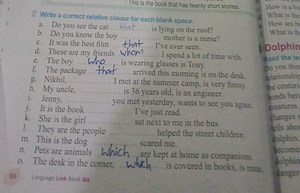 This is the book that has twenty short stories.
2 Write a correct relative clause for each blank space.
a. Do you see the cat that is lying on the roof?
b. Do you know the boy mother is a nurse?
c. It was the best film that I've ever seen.
d. These are my friends whom I spend a lot of time with.
e. The boy who is wearing glasses is Tony.
f. The package that arrived this morning is on the desk.
g. Nikhil, I met at the summer camp, is very funny.
h. My uncle, is 36 years old, is an engineer.
i. Jenny, you met yesterday, wants to see you again.
j. It is the book I've just read.
k. She is the girl sat next to me in the bus.
l. They are the people helped the street children.
m. This is the dog scared me.
n. Pets are animals which are kept at home as companions.
o. The desk in the corner, which is covered in books, is mine.
Language Link Book Six
Dolphin
Read the